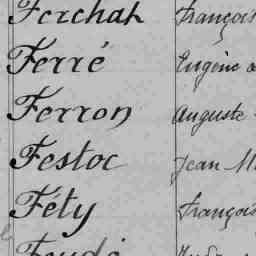 Ferchak François
Ferré Eugène
Ferron Auguste
Festoc Jean
Féty François